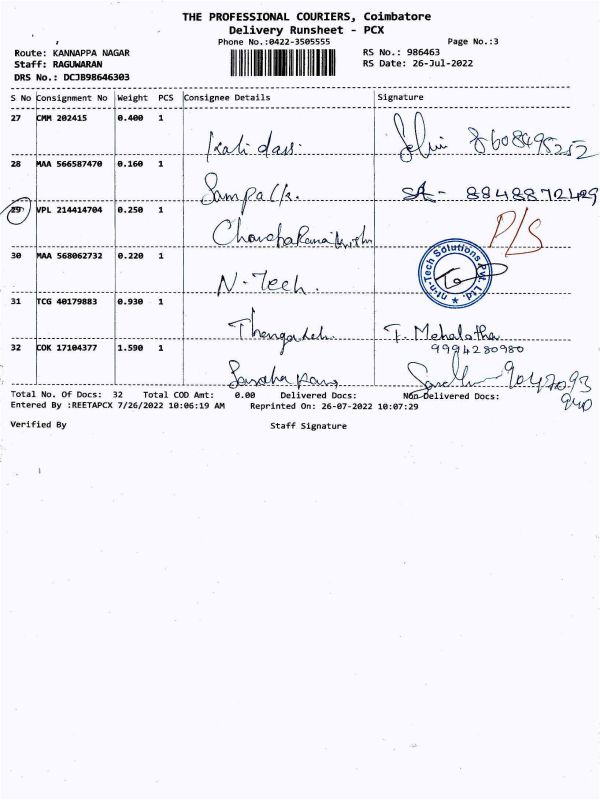 THE PROFESSIONAL COURIERS, Coimbatore
Delivery Runsheet - PCX
Phone No.:0422-3505555 Page No.:3
Route: KANNAPPA NAGAR RS No.: 986463
Staff: RAGUWARAN RS Date: 26-Jul-2022
DRS No.: DCJB98646303
S No Consignment No Weight PCS Consignee Details Signature
27 CMM 202415 0.400 1
Kali dass. Selvi 8608495252
28 MAA 566587470 0.160 1
Sampath. 8848872429
29 VPL 214414704 0.250 1 P/S
30 MAA 568062732 0.220 1
N-Tech. Tech Solutions Pvt. Ltd.
31 TCG 40179883 0.930 1
T. Mehalatha
9994280980
32 COK 17104377 1.590 1
9047093
940
Total No. Of Docs: 32 Total COD Amt: 0.00 Delivered Docs: Non Delivered Docs:
Entered By :REETAPCX 7/26/2022 10:06:19 AM Reprinted On: 26-07-2022 10:07:29
Verified By Staff Signature